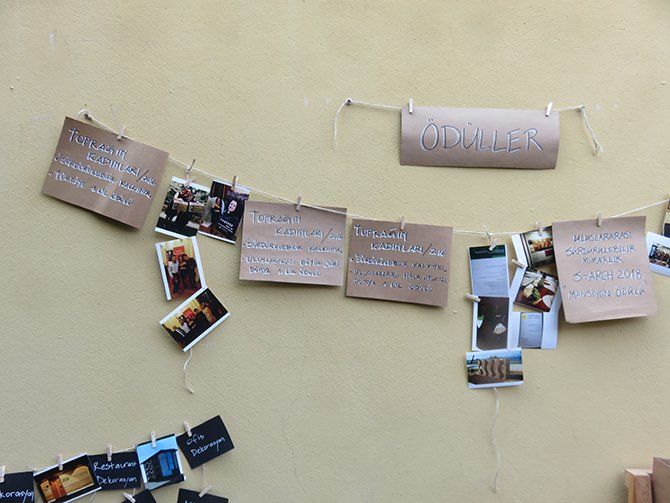 ÖDÜLLER
TOPRAĞIN
KADINLARI/2016
SÜRDÜRÜLEBİLİR KALKINMA
TÜRKİYE 1.LİK ÖDÜLÜ
TOPRAĞIN
KADINLARI/2016
SÜRDÜRÜLEBİLİR KALKINMA
ULUSLARARASI BÜYÜK JÜRİ
DÜNYA 1.LİK ÖDÜLÜ
TOPRAĞIN
KADINLARI/2016
SÜRDÜRÜLEBİLİR KALKINMA
ULUSLARARASI HALK
DÜNYA 1.LİK ÖDÜLÜ
ULUSLARARASI
SÜRDÜRÜLEBİLİR
MİMARLIK
S-ARCH 2018
"MANSİYON ÖDÜLÜ"
Ofis
Dekorasyon
Restaurant
Dekorasyon